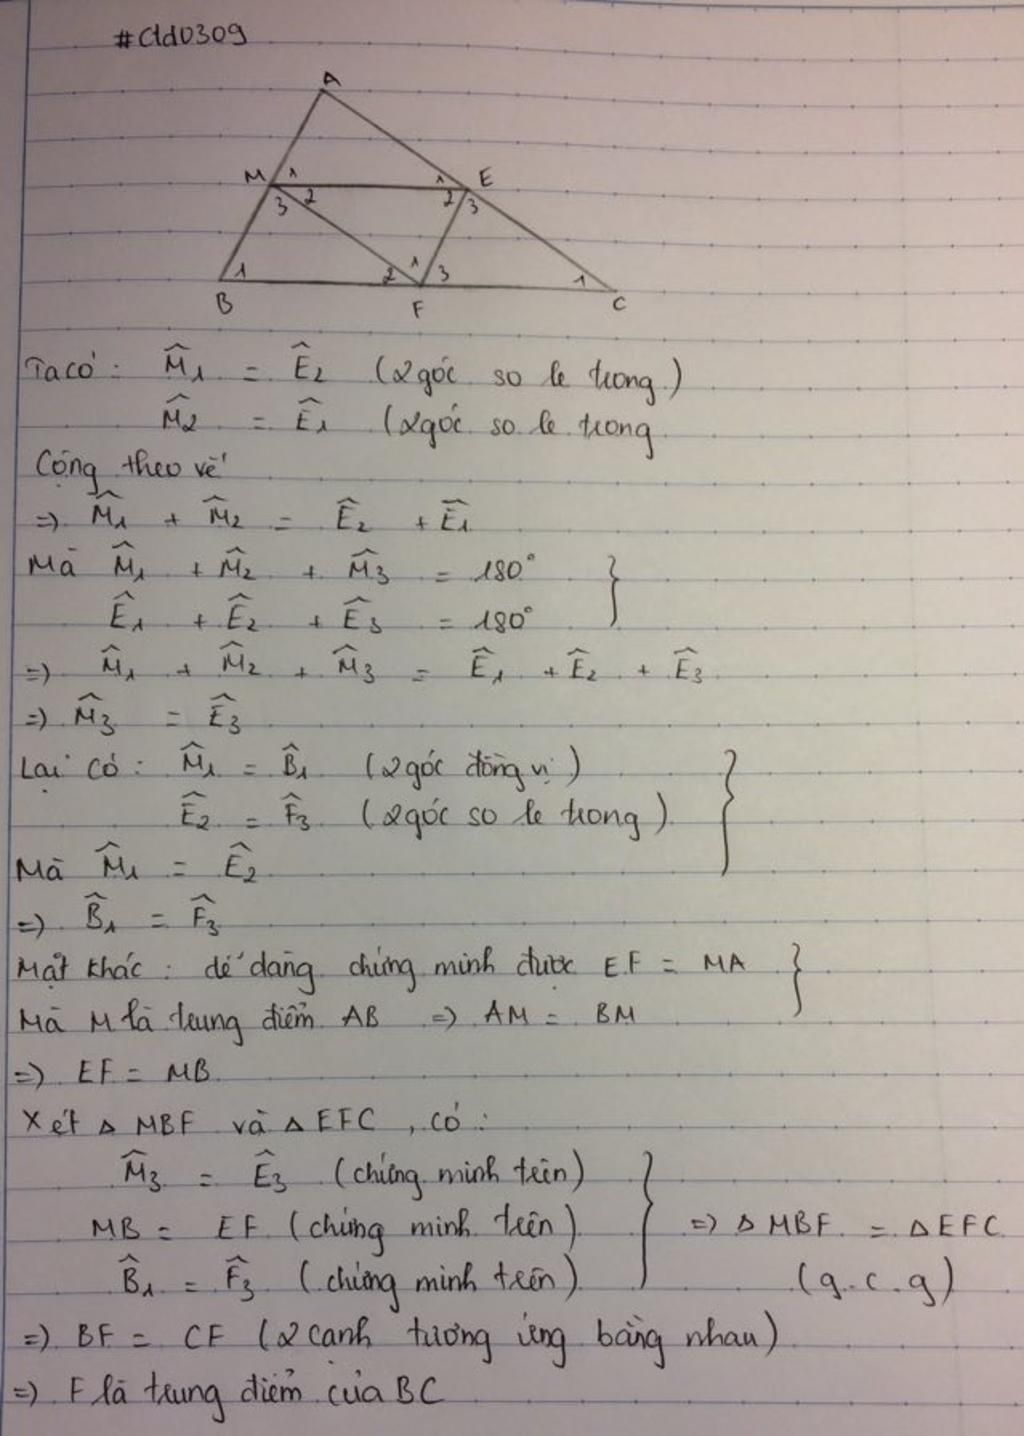 #dd0309
A
M 1 1 E
3 2 2 3
1 2 1 3 1
B F C
Ta có: M̂₁ = Ê₂ (2 góc so le trong)
M̂₂ = Ê₁ (2 góc so le trong
Cộng theo vế
=> M̂₁ + M̂₂ = Ê₂ + Ê₁
Mà M̂₁ + M̂₂ + M̂₃ = 180° }
Ê₁ + Ê₂ + Ê₃ = 180°
=> M̂₁ + M̂₂ + M̂₃ = Ê₁ + Ê₂ + Ê₃
=> M̂₃ = Ê₃
Lại có: M̂₁ = B̂₁ (2 góc đồng vị) }
Ê₂ = F̂₃ (2 góc so le trong)
Mà M̂₁ = Ê₂
=> B̂₁ = F̂₃
Mặt khác: dễ dàng chứng minh được EF = MA }
Mà M là trung điểm AB => AM = BM
=> EF = MB
Xét Δ MBF và Δ EFC, có:
M̂₃ = Ê₃ (chứng minh trên) }
MB = EF (chứng minh trên) => Δ MBF = Δ EFC
B̂₁ = F̂₃ (chứng minh trên) (g.c.g)
=> BF = CF (2 cạnh tương ứng bằng nhau)
=> F là trung điểm của BC